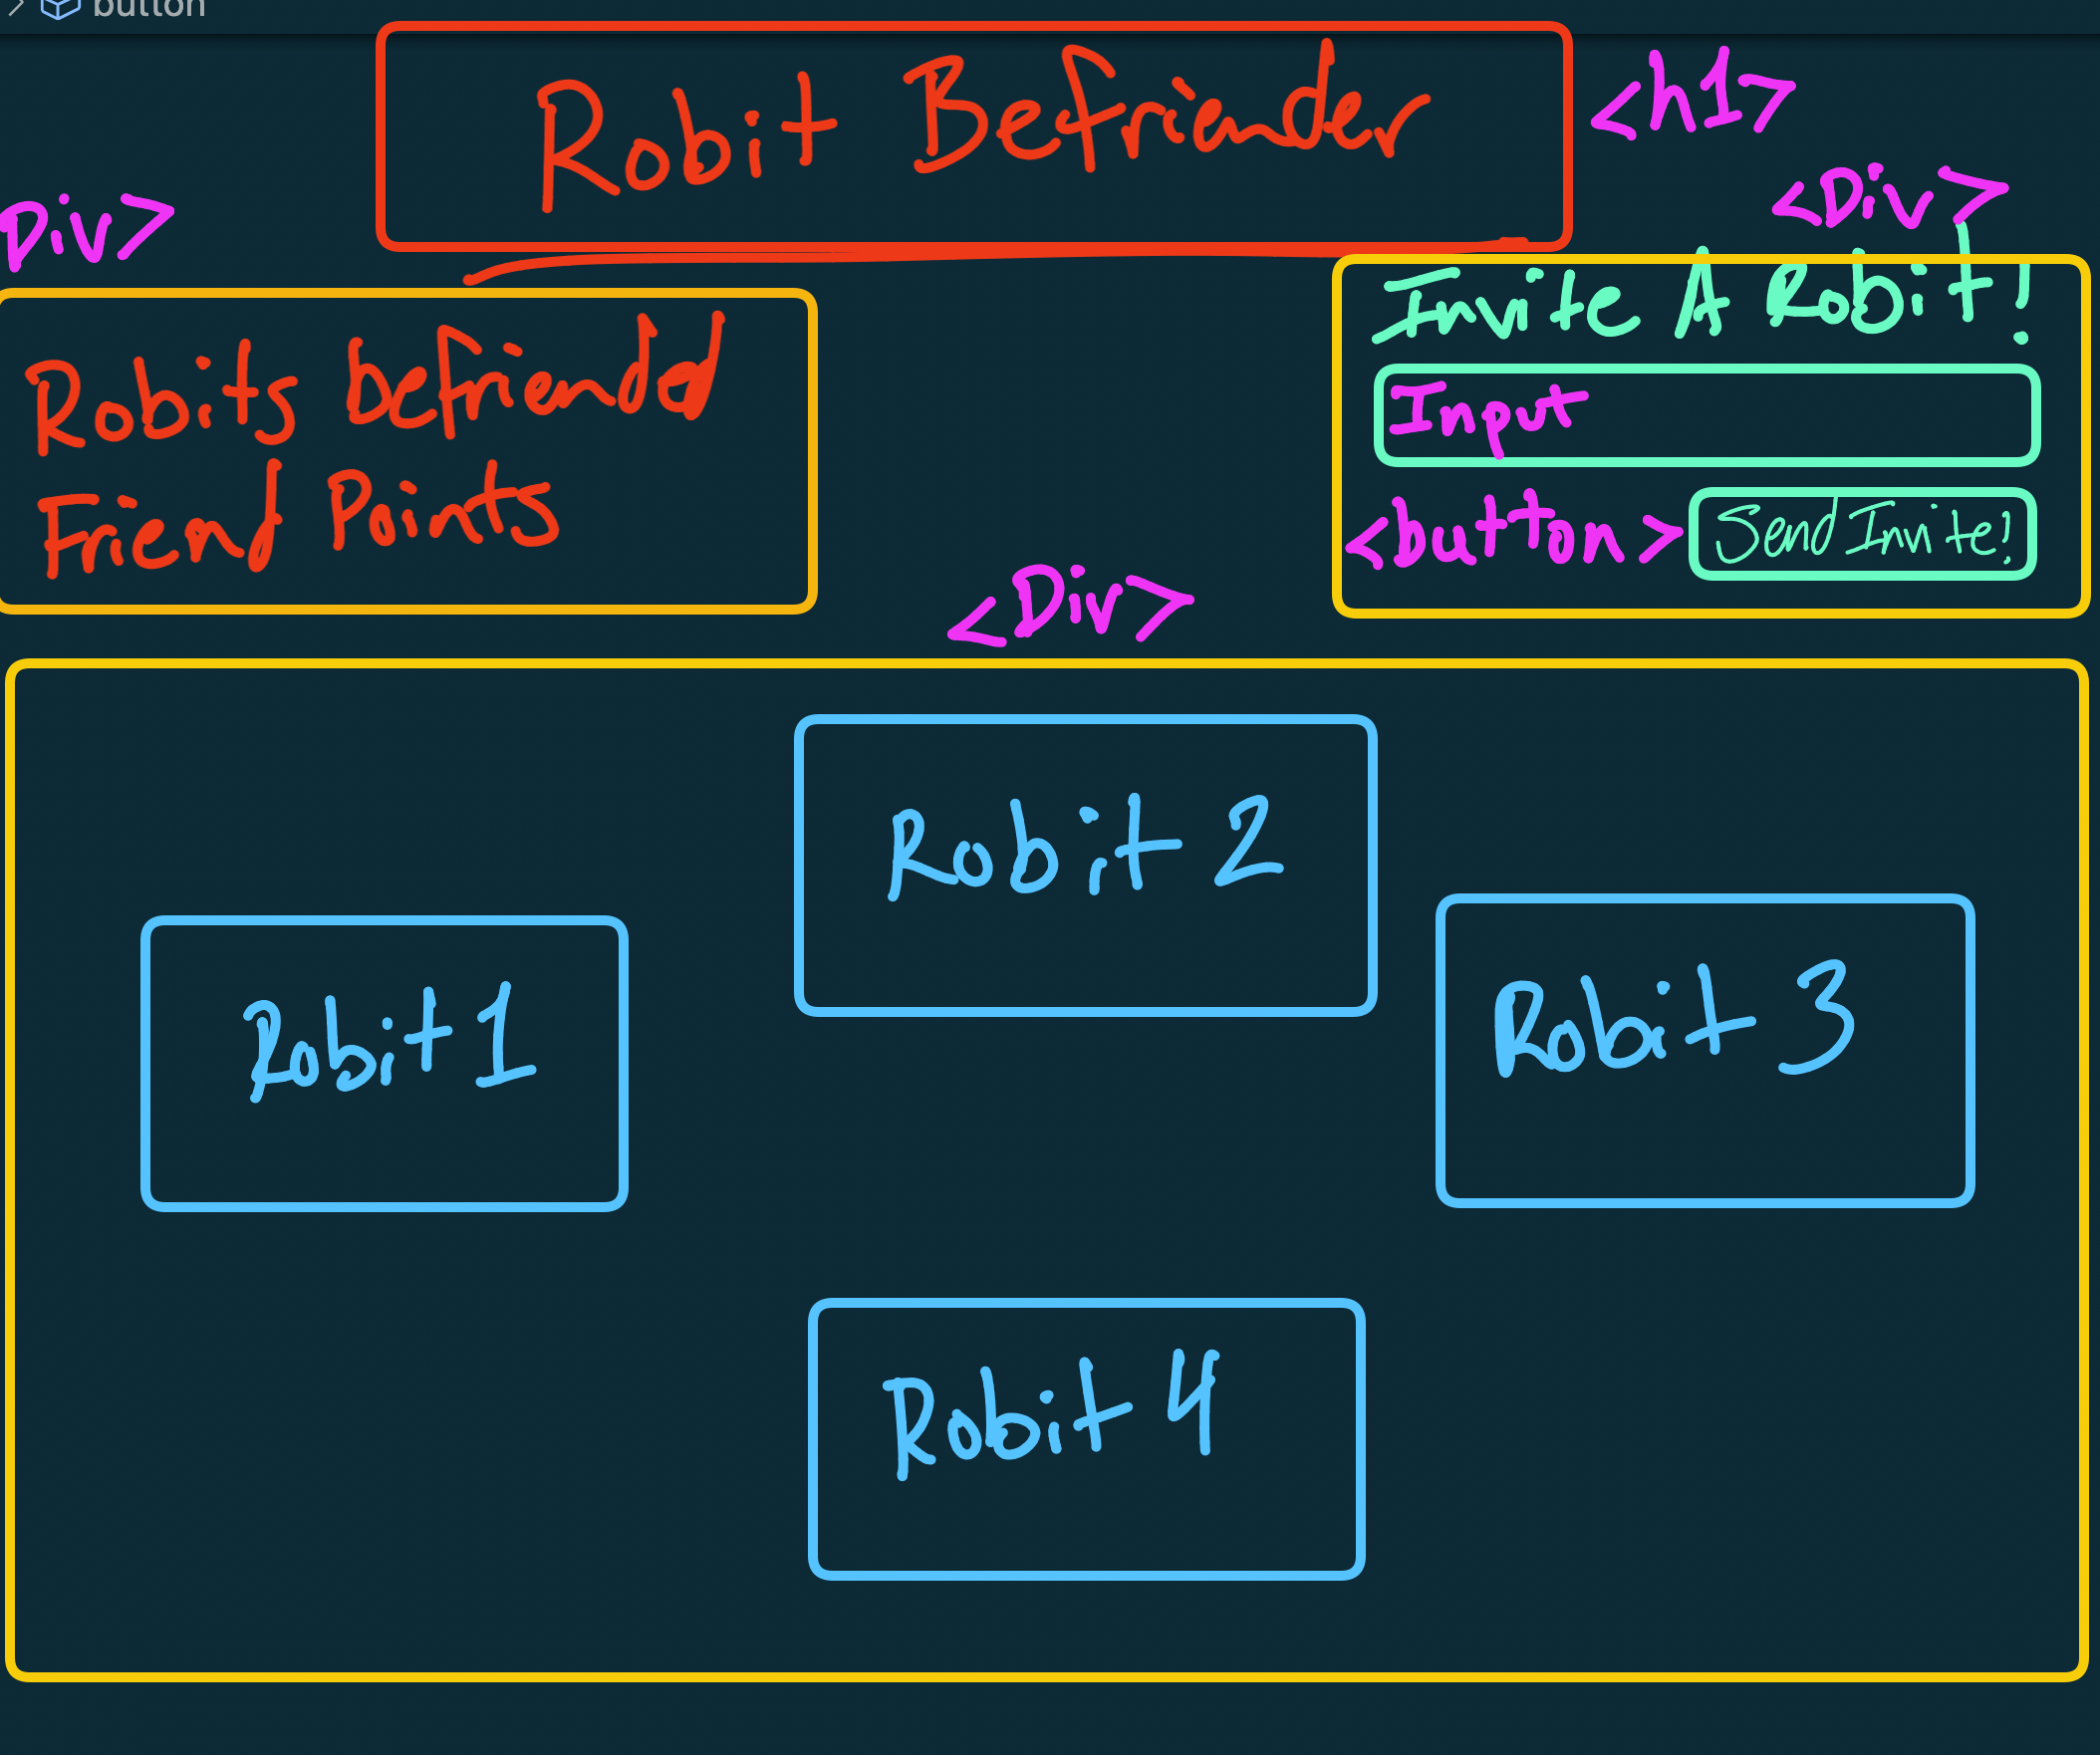 button
Robit Befriender
<h1>
Div>
<Div>
Robits befriended
Friend Points
Invite A Robit!
Input
<button> Send Invite!
<Div>
Robit 2
Robit 1
Robit 3
Robit 4